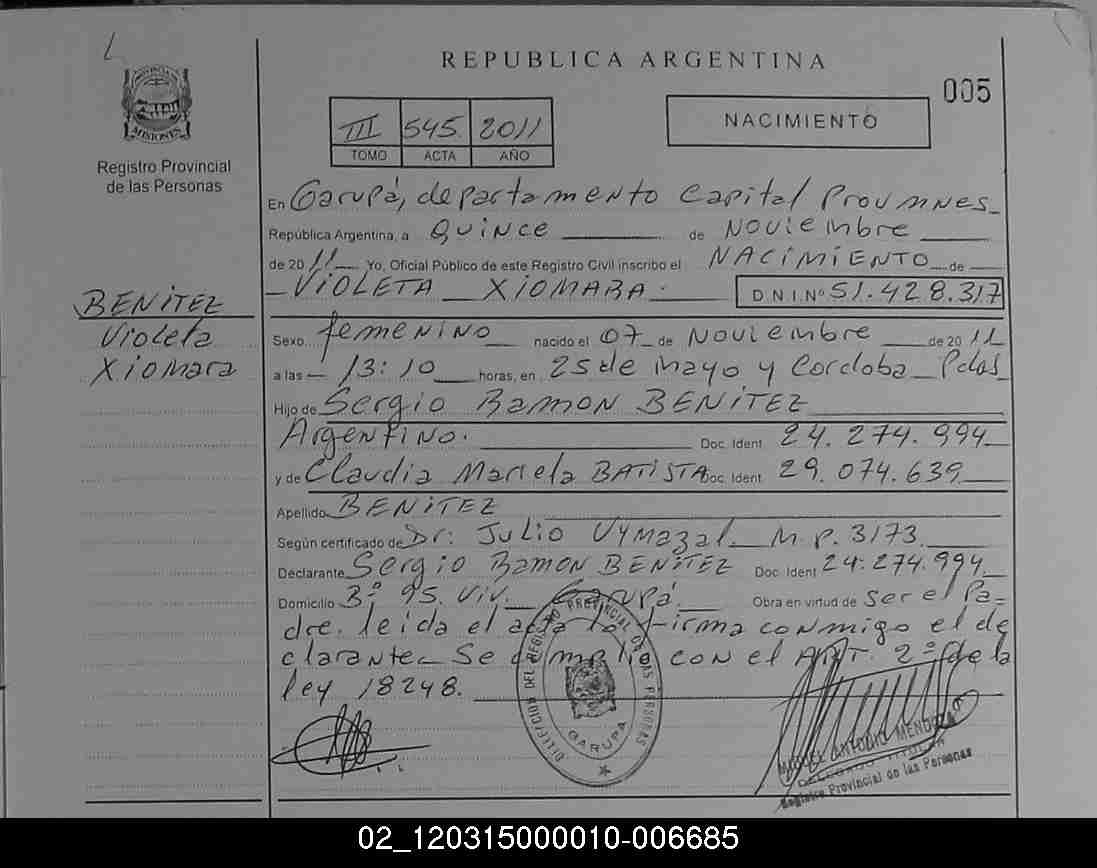 REPUBLICA ARGENTINA
005
PROVINCIA DE MISIONES
Registro Provincial
de las Personas
III 545 2011
TOMO ACTA AÑO
NACIMIENTO
En Garupá, departamento Capital Prov Mnes
República Argentina, a Quince de Noviembre
de 2011 Yo, Oficial Público de este Registro Civil inscribo el NACIMIENTO de
VIOLETA XIOMARA. D.N.I.Nº 51.428.317
BENITEZ
Violeta
Xiomara
Sexo femenino nacido el 07 de Noviembre de 2011
a las 13:10 horas, en 25 de Mayo y Cordoba Pdas
Hijo de Sergio Ramon BENITEZ
Argentino. Doc. Ident 24.274.994
y de Claudia Mariela BATISTA Doc. Ident. 29.074.639
Apellido BENITEZ
Según certificado de Dr: Julio Vymazal M.P. 3173.
Declarante Sergio Ramon BENITEZ Doc. Ident 24.274.994
Domicilio 3º 95. Viv. Garupá. Obra en virtud de ser el Pa-
dre. leida el acta la firma conmigo el de
clarante. Se cumplio con el ART. 2º de la
ley 18248.
DELEGACION DEL REGISTRO PROVINCIAL DE LAS PERSONAS
GARUPA
MIGUEL ANTONIO MENDOZA
DELEGADO TITULAR
Registro Provincial de las Personas
02_120315000010-006685